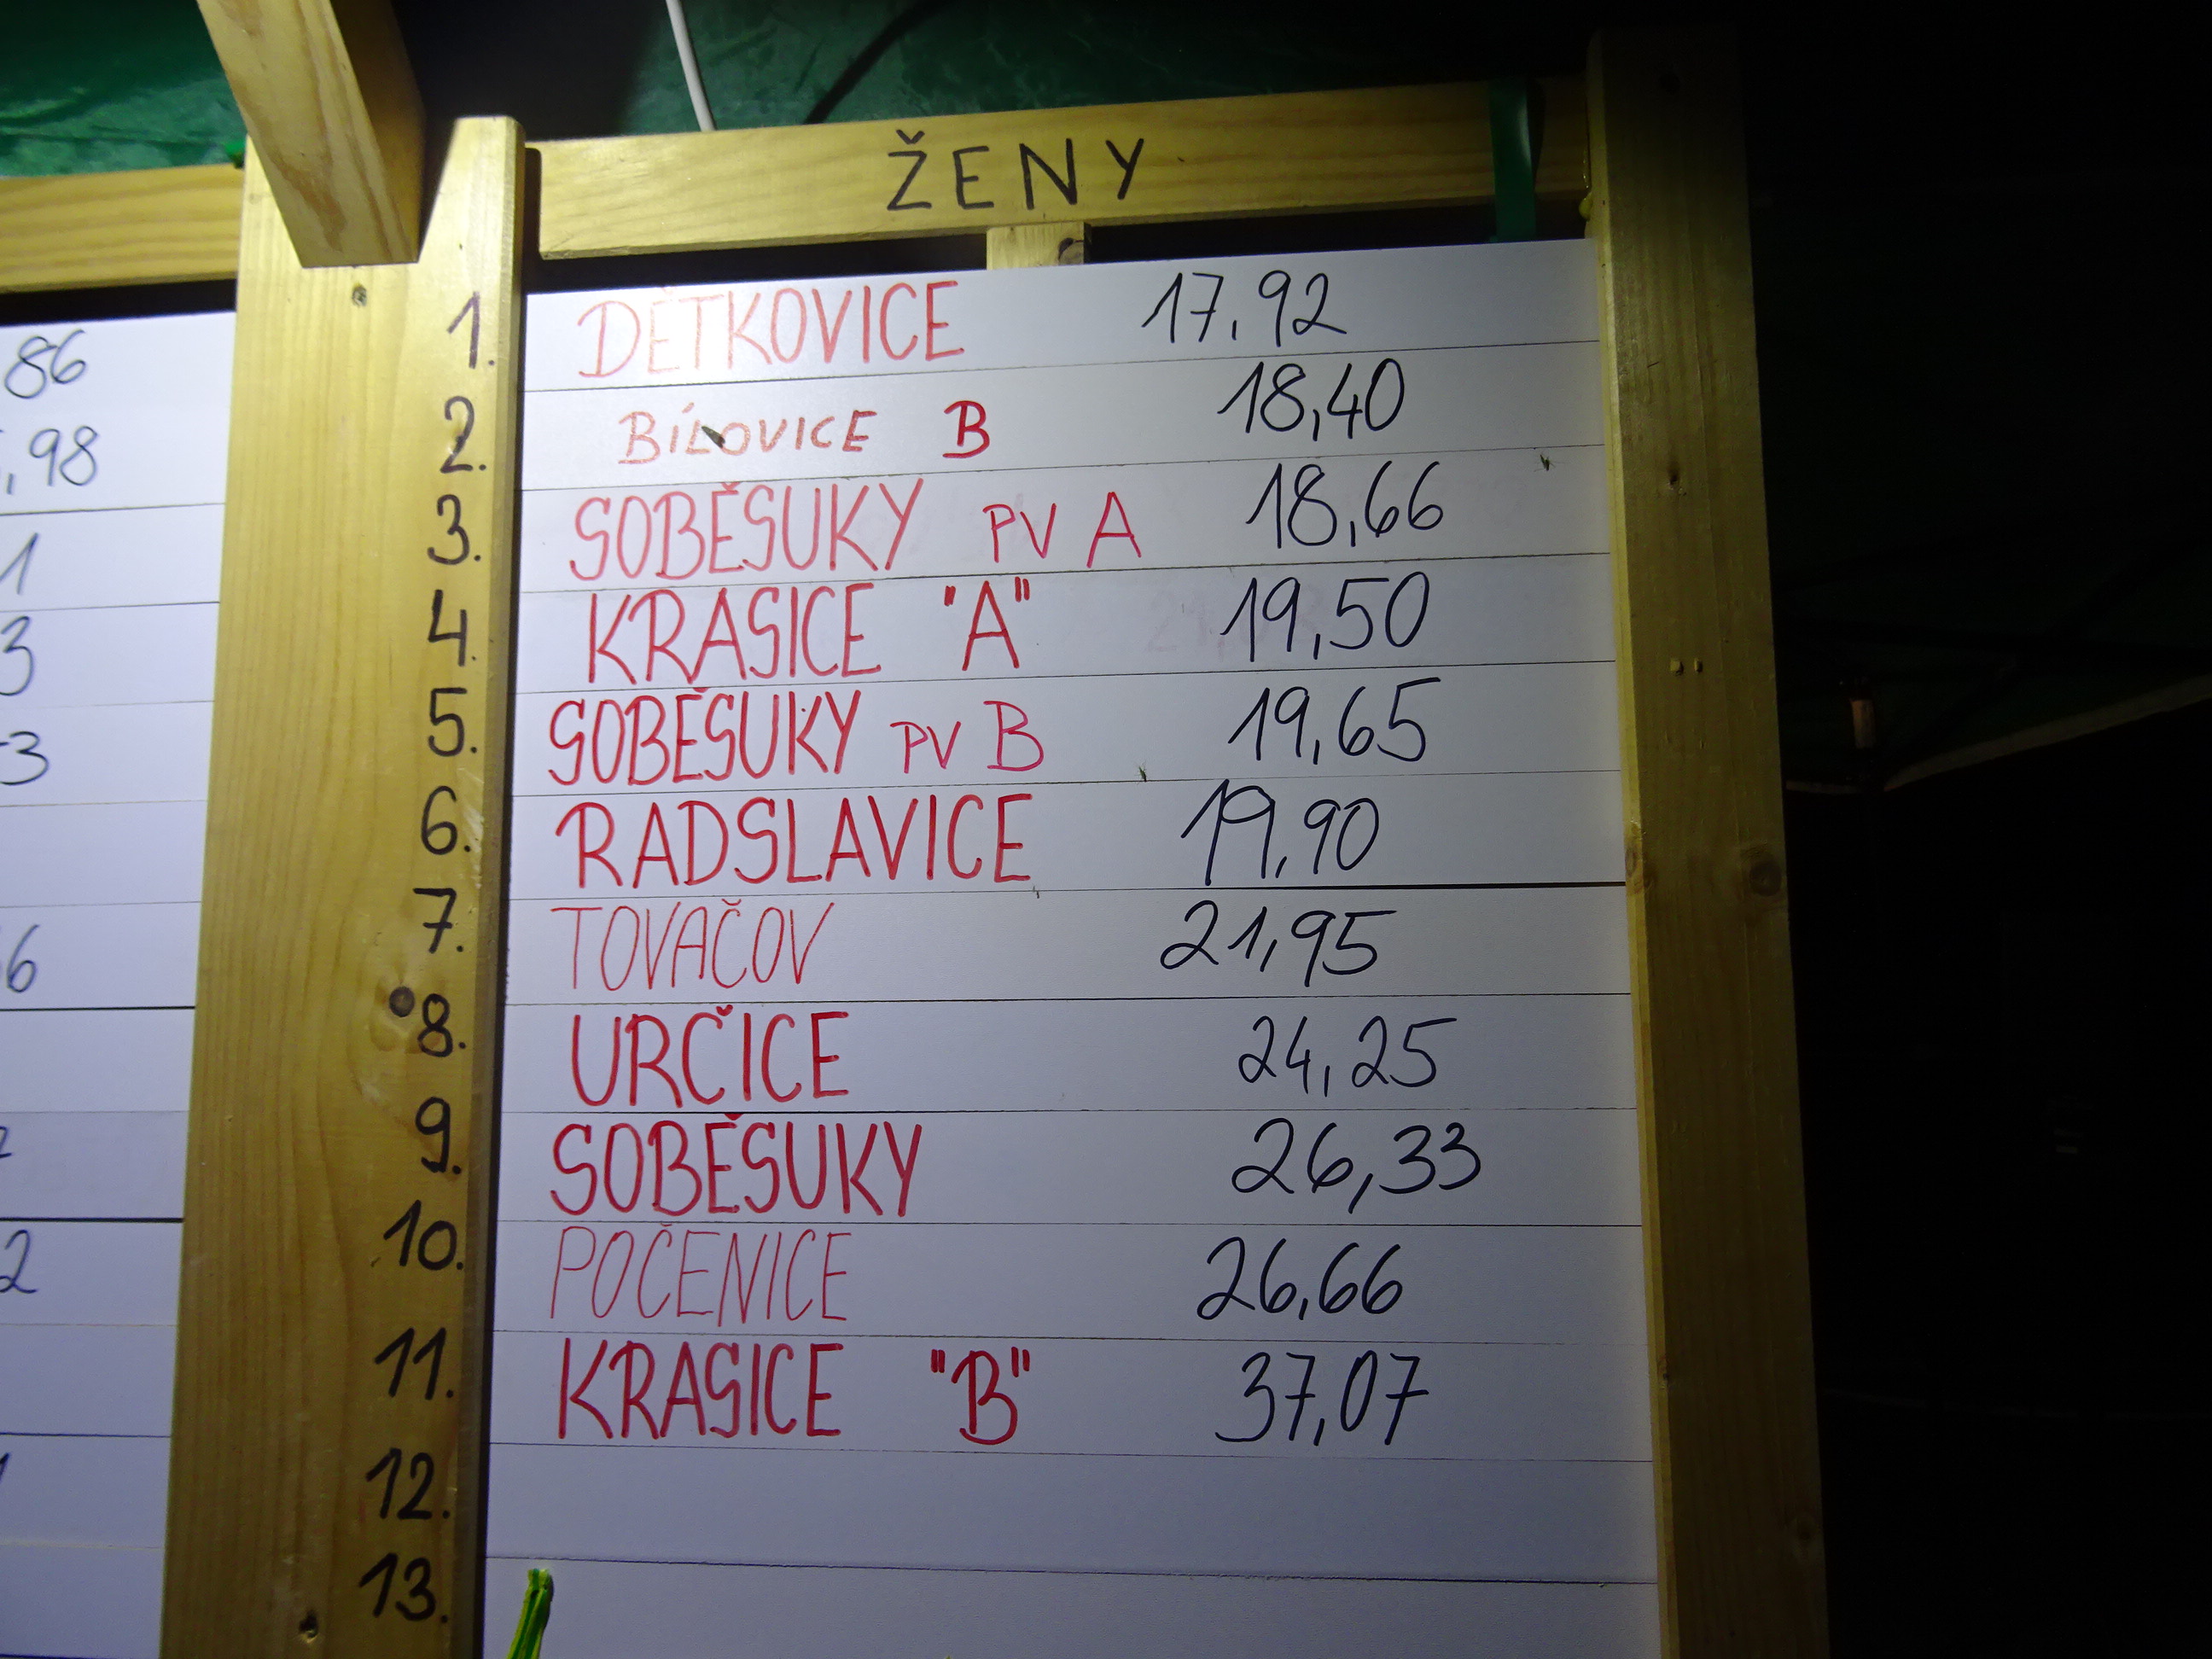 ŽENY
1. DĚTKOVICE 17,92
2. BÍLOVICE B 18,40
3. SOBĚSUKY PV A 18,66
4. KRASICE "A" 19,50
5. SOBĚSUKY PV B 19,65
6. RADSLAVICE 19,90
7. TOVAČOV 21,95
8. URČICE 24,25
9. SOBĚSUKY 26,33
10. POČENICE 26,66
11. KRASICE "B" 37,07
12.
13.
86
,98
1
3
3
6
2